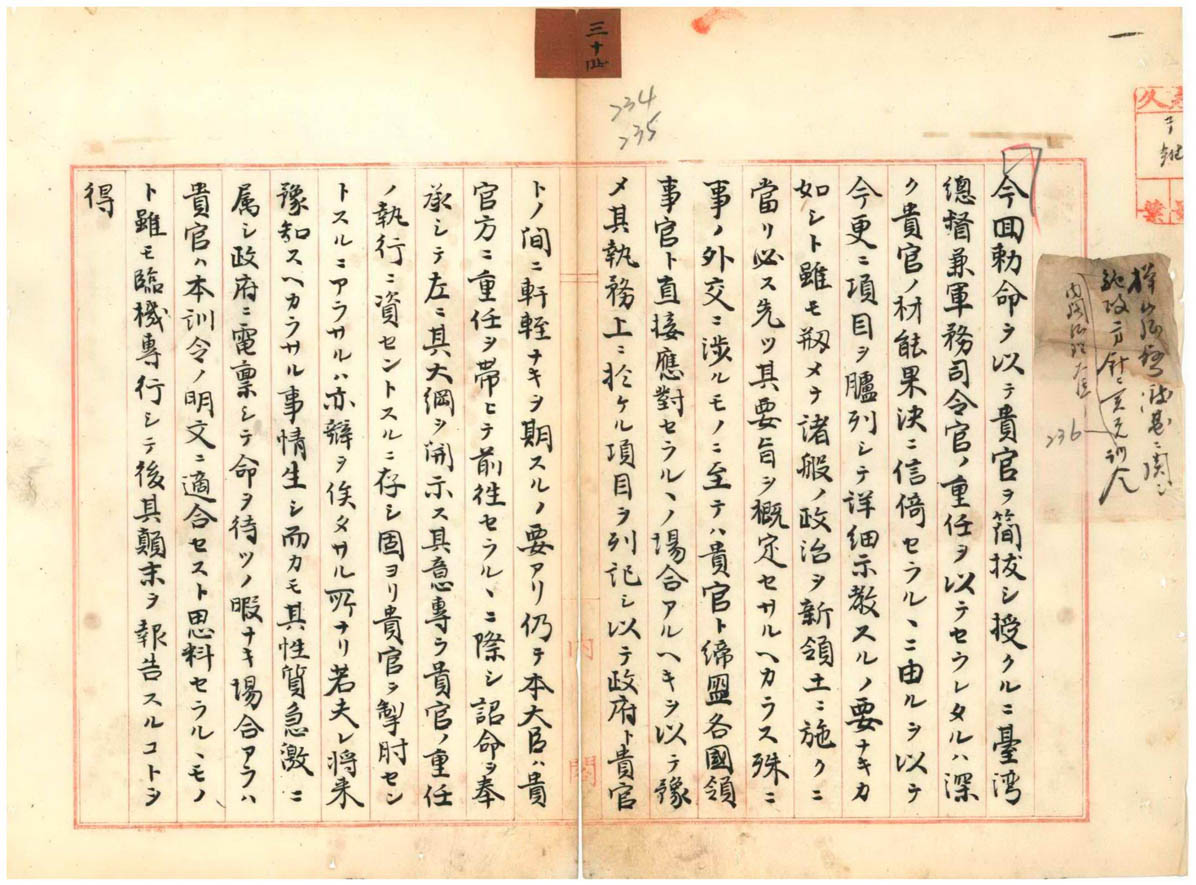 一
永久
樺山總督赴任ニ関シ
施政方針ニ
訓令
内閣総理大臣
236
三十四
234
235
今回勅命ヲ以テ貴官ヲ簡拔シ授クルニ臺湾
總督兼軍務司令官ノ重任ヲ以テセラレタルハ深
ク貴官ノ材能果決ニ信倚セラルヽニ由ルヲ以テ
今更ニ項目ヲ臚列シテ詳細示教スルノ要ナキカ
如シト雖モ剏メテ諸般ノ政治ヲ新領土ニ施クニ
當リ必ス先ツ其要旨ヲ概定セサルヘカラス殊ニ
事ノ外交ニ渉ルモノニ至テハ貴官ト締盟各國領
事官ト直接應對セラルヽノ場合アルヘキヲ以テ豫
メ其執務上ニ於ケル項目ヲ列記シ以テ政府ト貴官
トノ間ニ軒輊ナキヲ期スルノ要アリ仍テ本大臣ハ貴
官方ニ重任ヲ帯ヒテ前往セラルヽニ際シ詔命ヲ奉
承シテ左ニ其大綱ヲ開示ス其意專ラ貴官ノ重任
ノ執行ニ資セントスルニ存シ固ヨリ貴官ヲ掣肘セン
トスルニアラサルハ亦辯ヲ俟タサル所ナリ若夫レ将来
豫知スヘカラサル事情生シ而カモ其性質急激ニ
属シ政府ニ電稟シテ命ヲ待ツノ暇ナキ場合アラハ
貴官ハ本訓令ノ明文ニ適合セスト思料セラルヽモノ
ト雖モ臨機專行シテ後其顛末ヲ報告スルコトヲ
得
内閣